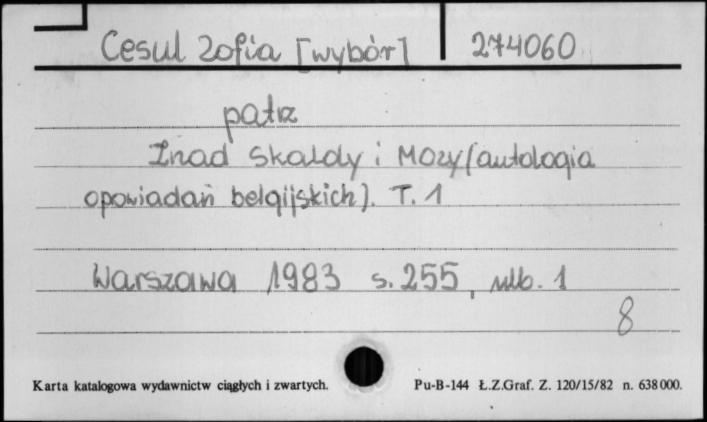 Cesul Zofia [wybór] 274060
patrz
Znad Skaldy i Mozy (antologia
opowiadań belgijskich). T. 1
Warszawa 1983 s. 255, nlb. 1
8
Karta katalogowa wydawnictw ciągłych i zwartych. Pu-B-144 Ł.Z.Graf. Z. 120/15/82 n. 638000.